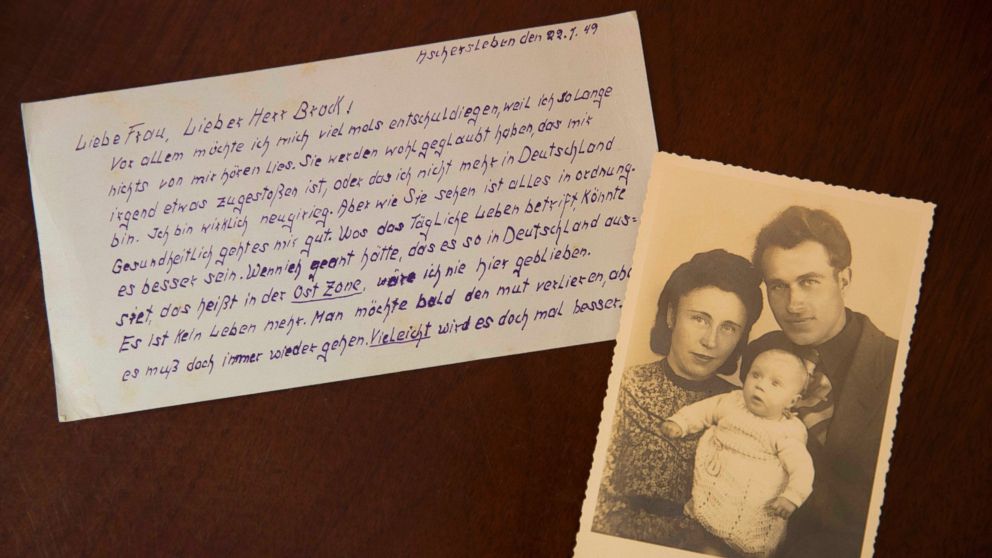 Aschersleben den 22.1.49
Liebe Frau, Lieber Herr Brock!
Vor allem möchte ich mich viel mals entschuldiegen, weil ich so lange
nichts von mir hören lies. Sie werden wohl geglaubt haben, das mir
irgend etwas zugestoßen ist, oder das ich nicht mehr in Deutschland
bin. Ich bin wirklich neugirieg. Aber wie Sie sehen ist alles in ordnung.
Gesundheitlich geht es mir gut. Was das Tägliche Leben betrift könnte
es besser sein. Wenn ich geant hätte, das es so in Deutschland aus=
siet, das heißt in der Ost Zone, wäre ich nie hier geblieben.
Es ist kein Leben mehr. Man möchte bald den mut verlieren, abe
es muß doch immer wieder gehen. Vieleicht wird es doch mal besser.